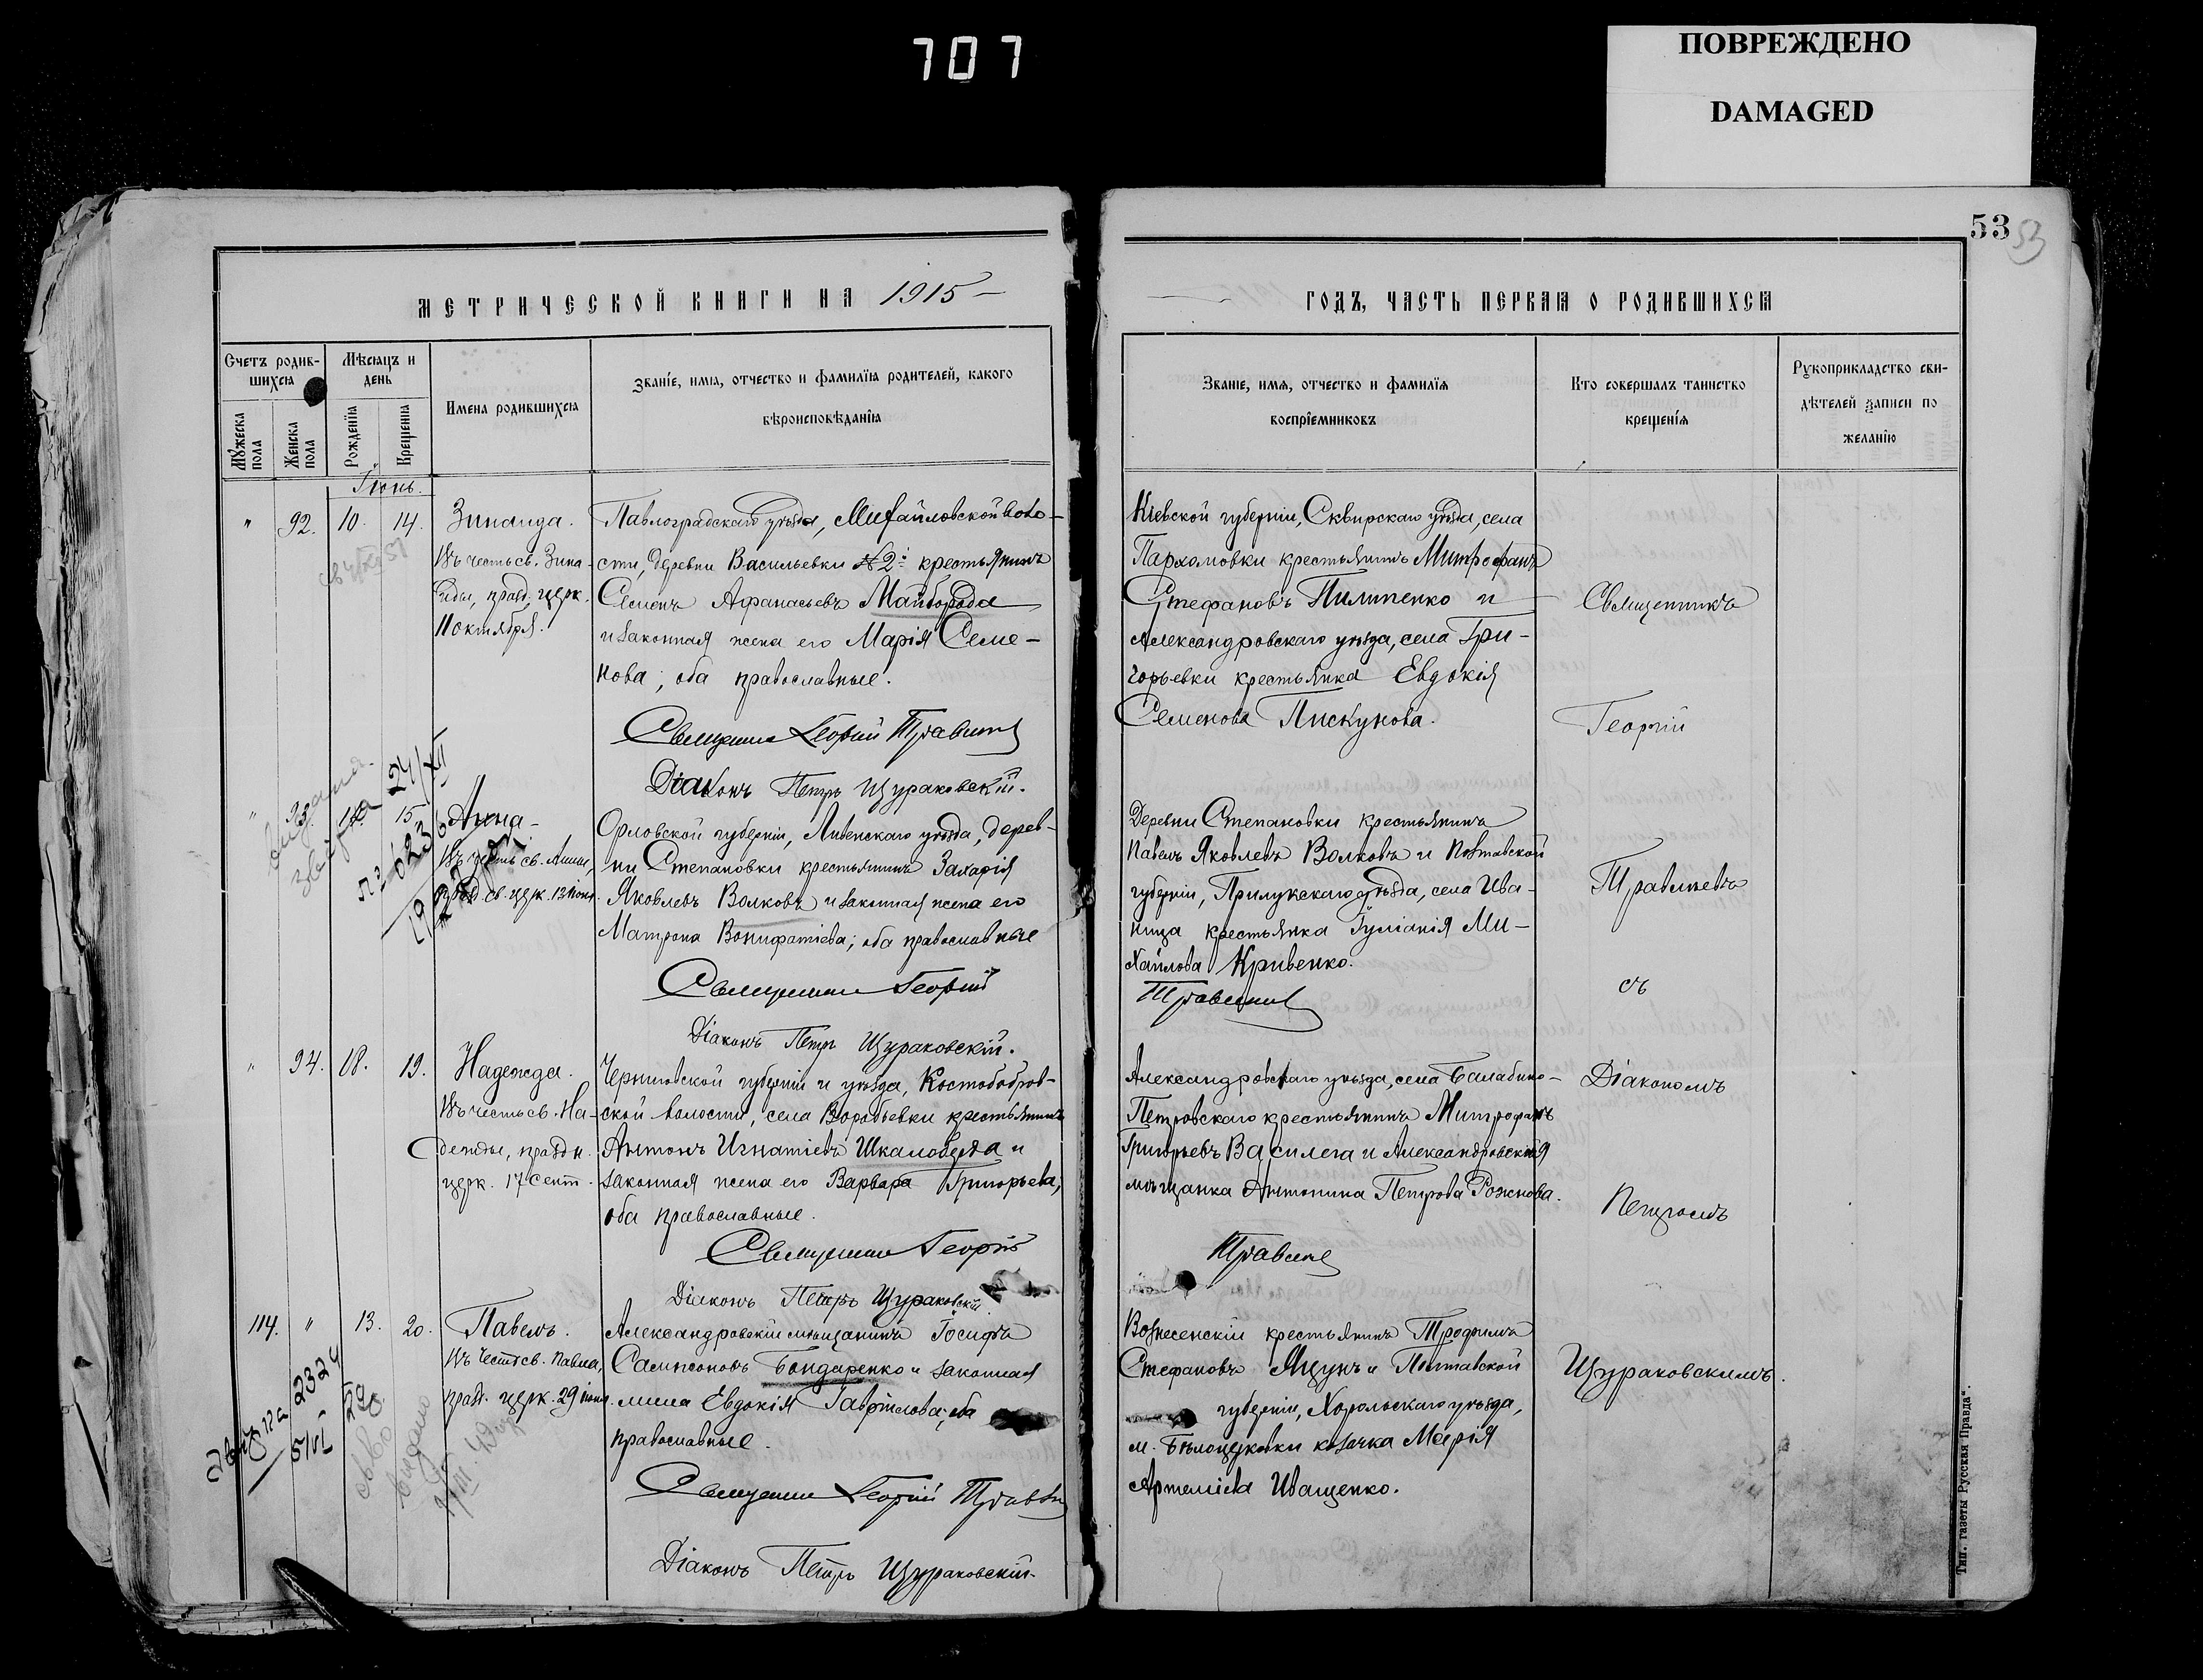 707
ПОВРЕЖДЕНО
DAMAGED
53
53
МЕТРИЧЕСКОЙ КНИГИ НА 1915
ГОДЪ, ЧАСТЬ ПЕРВАЯ О РОДИВШИХСЯ
Счетъ родив-
шихся
Мѣсяцъ и
день
Мужеска
пола
Женска
пола
Рожденїя
Крещенїя
Имена родившихся
Званїе, имя, отчество и фамилїя родителей, какого
вѣроисповѣданїя
Званїе, имя, отчество и фамилїя
воспрїемниковъ
Кто совершалъ таинство
крещенїя
Рукоприкладство сви-
дѣтелей записи по
желанїю
Іюнь.
" 92. 10. 14.
Зинаида.
Въ честь св. Зина-
иды, празд. церк.
11 октября.
Павлоградскаго уѣзда, Михайловской воло-
сти, деревни Васильевки №2й крестьянинъ
Семенъ Афанасьевъ Майборода
и законная жена его Марія Семе-
нова; оба православные.
Священникъ Георгій Травинъ
Діаконъ Петръ Щураковскій.
Кіевской губерніи, Сквирскаго уѣзда, села
Пархомовки крестьянинъ Митрофанъ
Стефановъ Пилипенко и
Александровскаго уѣзда, села Гри-
горьевки крестьянка Евдокія
Семенова Пискунова.
Священникъ
Георгій
" 93. 15
24/XII
Анна
Въ честь св. Анны,
празд. св. церк. 13 іюня.
Орловской губерніи, Ливенскаго уѣзда, дерев-
ни Степановки крестьянинъ Захарія
Яковлевъ Волковъ и законная жена его
Матрона Вонифатіева; оба православные
Священникъ Георгій
Діаконъ Петръ Щураковскій.
Деревни Степановки крестьянинъ
Павелъ Яковлевъ Волковъ и Полтавской
губерніи, Прилукскаго уѣзда, села Ива-
ница крестьянка Іуліанія Ми-
хайлова Кривенко.
съ
" 94. 18. 19.
Надежда.
Въ честь св. На-
дежды, праздн.
церк. 17 сент.
Черниговской губерніи и уѣзда, Костобобров-
ской волости, села Воробьевки крестьянинъ
Антонъ Игнатіевъ Шкалоберда и
законная жена его Варвара Григорьева,
оба православные.
Священникъ Георгій
Діаконъ Петръ Щураковскій
Александровскаго уѣзда, села Балабино-
Петровскаго крестьянинъ Митрофанъ
Григорьевъ Василега и Александровская
мѣщанка Антонина Петрова Рожнова.
Діакономъ
Петромъ
114. " 13. 20.
Павелъ.
Въ честь св. Павла,
празд. церк. 29 іюня.
Александровскій мѣщанинъ Іосифъ
Сампсоновъ Бондаренко и законная
жена Евдокія Гавріилова; оба
православные.
Священникъ Георгій
Діаконъ Петръ Щураковскій.
Вознесенскій крестьянинъ Трофимъ
Стефановъ Яцунъ и Полтавской
губерніи, Хорольскаго уѣзда,
м. Бѣлоцерковки козачка Марія
Артеміева Иващенко.
Щураковскимъ.
Тип. газеты "Русская Правда".